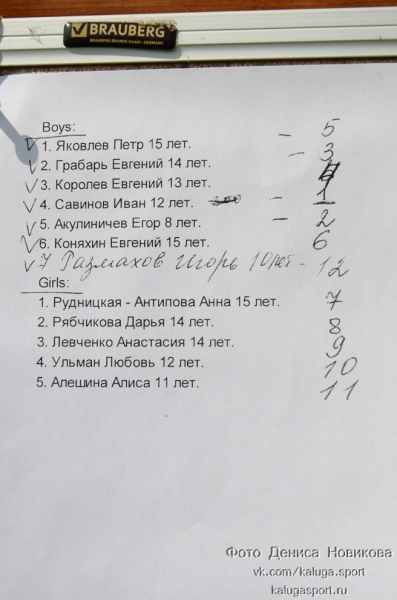 BRAUBERG
BRAUBERG BRANDS GmbH - GERMANY
Boys:
1. Яковлев Петр 15 лет. - 5
2. Грабарь Евгений 14 лет. - 3
3. Королев Евгений 13 лет. 4
4. Савинов Иван 12 лет. - 1
5. Акулиничев Егор 8 лет. - 2
6. Коняхин Евгений 15 лет. 6
7 Размахов Игорь 10 лет - 12
Girls:
1. Рудницкая - Антипова Анна 15 лет. 7
2. Рябчикова Дарья 14 лет. 8
3. Левченко Анастасия 14 лет. 9
4. Ульман Любовь 12 лет. 10
5. Алешина Алиса 11 лет. 11
Фото Дениса Новикова
vk.com/kaluga.sport
kalugasport.ru